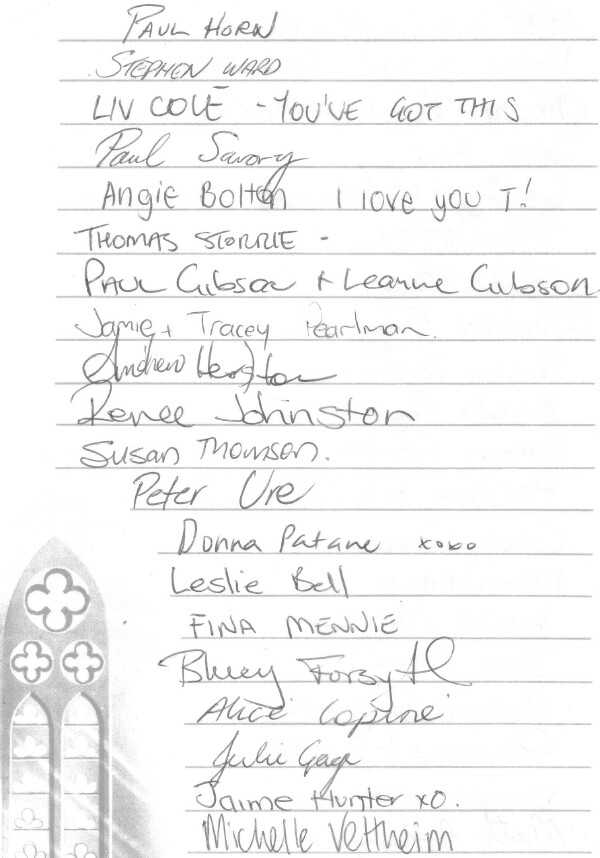 PAUL HORN
STEPHEN WARD
LIV COLE - YOU'VE GOT THIS
Paul Savory
ANGIE BOLTON I love you T!
THOMAS STORRIE -
PAUL Gibson + Leanne Gibson
Jamie + Tracey Pearlman.
Andrew
Renee Johnston
Susan Thomson.
Peter Ure
Donna Patane xoxo
Leslie Bell
FINA MENNIE
Bluey Forsyth
Alice
Julie Gage
Jaime Hunter xo.
Michelle Veltheim